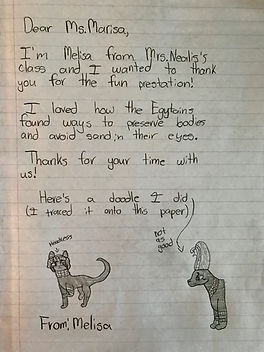 Dear Ms. Marisa,
I'm Melisa from Mrs. Nealis's
class and I wanted to thank
you for the fun prestation!
I loved how the Egytains
found ways to preserve bodies
and avoid sand in their eyes.
Thanks for your time with
us!
Here's a doodle I did
(I traced it onto this paper)
not
as
good
From, Melisa